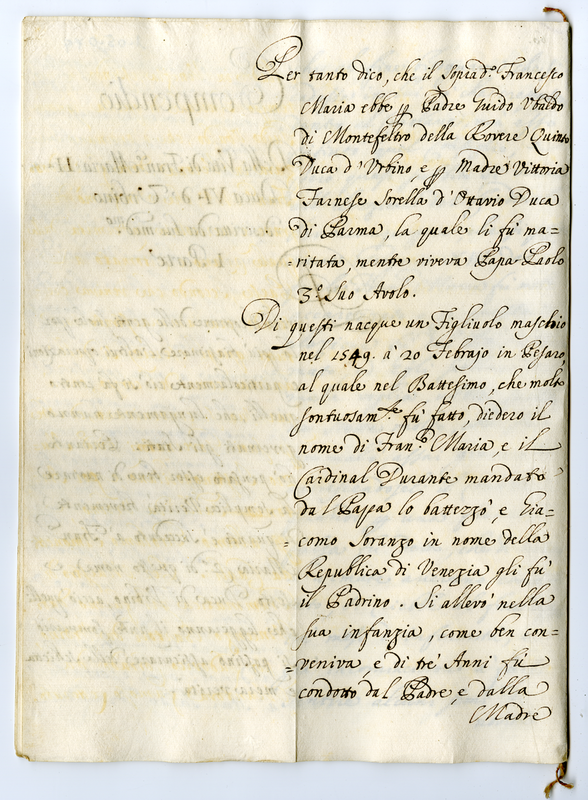 Per tanto dico, che il sopiad.º Francesco
Maria ebbe p Padre Guido Ubaldo
di Montefeltro della Rovere Quinto
Duca d'Urbino e p Madre Vittoria
Farnese Sorella d'Ottavio Duca
di Parma, la quale li fù ma=
=ritata, mentre viveva Papa Paolo
3.º Suo Avolo.
Di questi nacque un Figliuolo maschio
nel 1549. à 20 Febrajo in Pesaro,
al quale nel Battesimo, che molto
sontuosam.te fù fatto, diedero il
nome di Fran.º Maria, e il
Cardinal Durante mandato
dal Papa lo battezzò, e Gia=
=como Soranzo in nome della
Republica di Venezia gli fù
il Padrino. Si allevò nella
sua infanzia, come ben con=
=veniva e di trè Anni fù
condotto dal Padre, e dalla
Madre